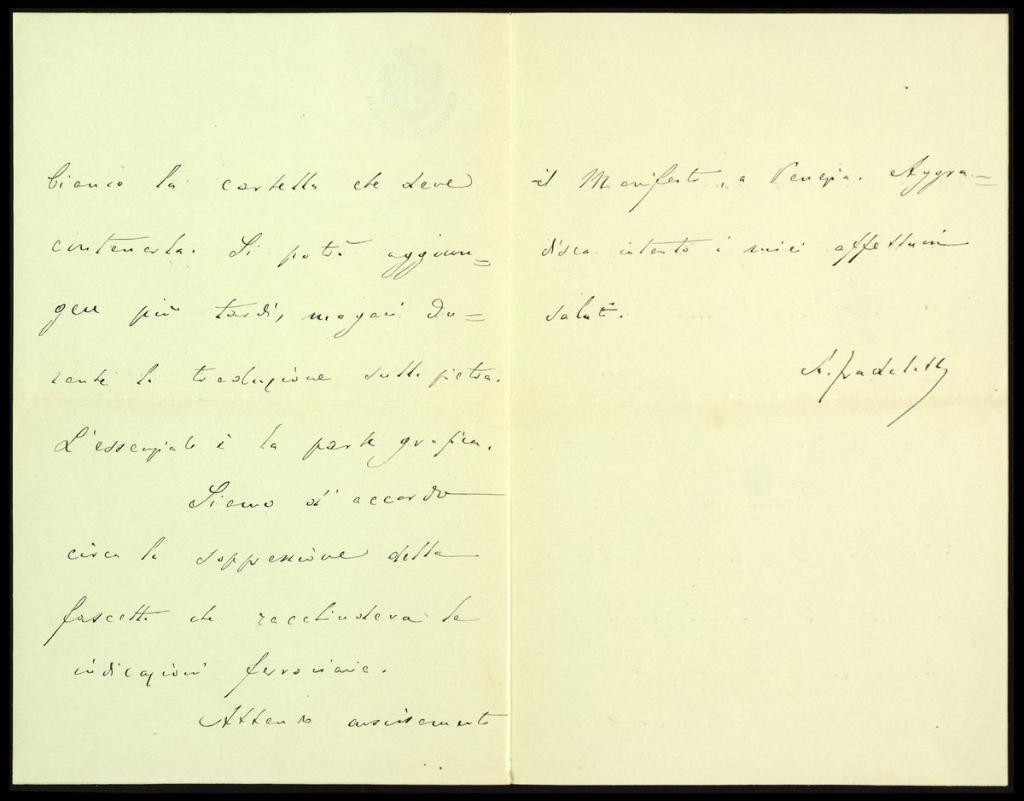 bianco la cartella che deve
contenerla. Si potrà aggiun=
gere più tardi, magari du=
rante la traduzione sulla pietra.
L'essenziale è la parte grafica.
Siamo d'accordo
circa la soppressione della
fascetta che racchiudeva le
indicazioni ferroviarie.
Attendo ansiosamente
il Manifesto, a Venezia. Aggra=
disca intanto i miei affettuosi
saluti.
A. Fradeletto